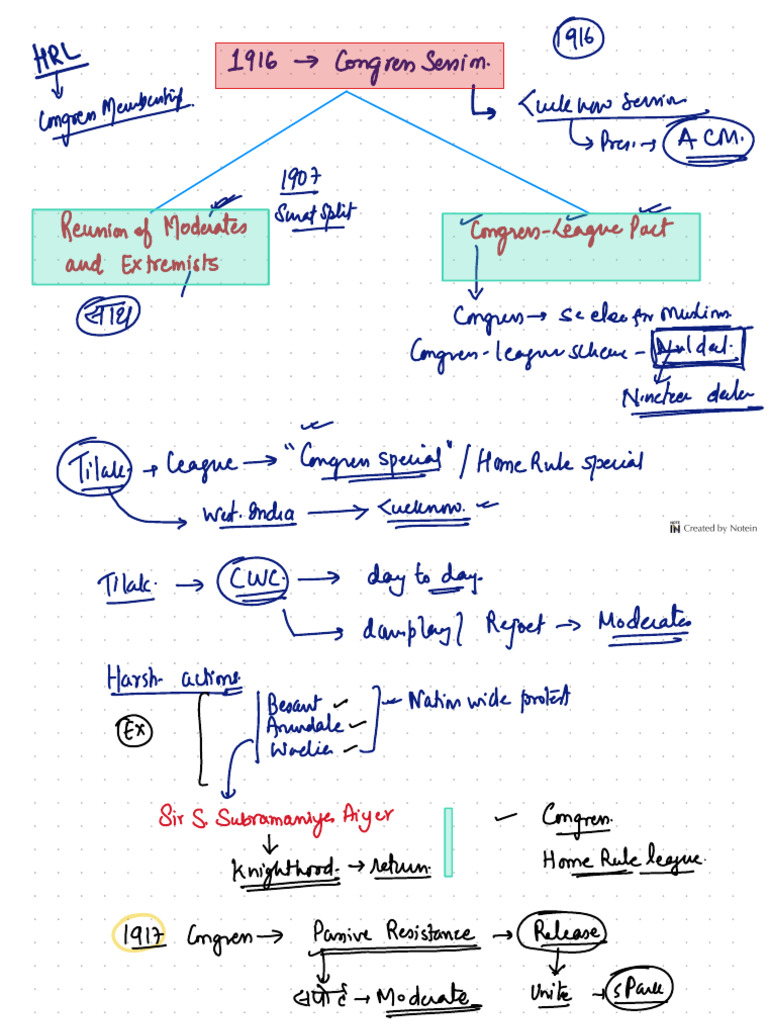 1916
HRL
1916 → Congress Session.
Congress Membership
Lucknow Session
Pres. → ACM.
1907
Surat Split
Reunion of Moderates
and Extremists
Congress-League Pact
साथ
Congress → Se elec for Muslims
Congress-league scheme -
Nineteen
Tilak → League → "Congress special" / Home Rule special
West. India → Lucknow.
IN Created by Notein
Tilak. → CWC. → day to day.
Reject → Moderates
Harsh actions
Besant
Nation wide protest
Arundale
Ex
Wadia
Sir S. Subramaniya Aiyer
Congress.
Knighthood. → return.
Home Rule league.
1917 Congress → Passive Resistance → Release
सपोर्ट → Moderate
Unite → Spark